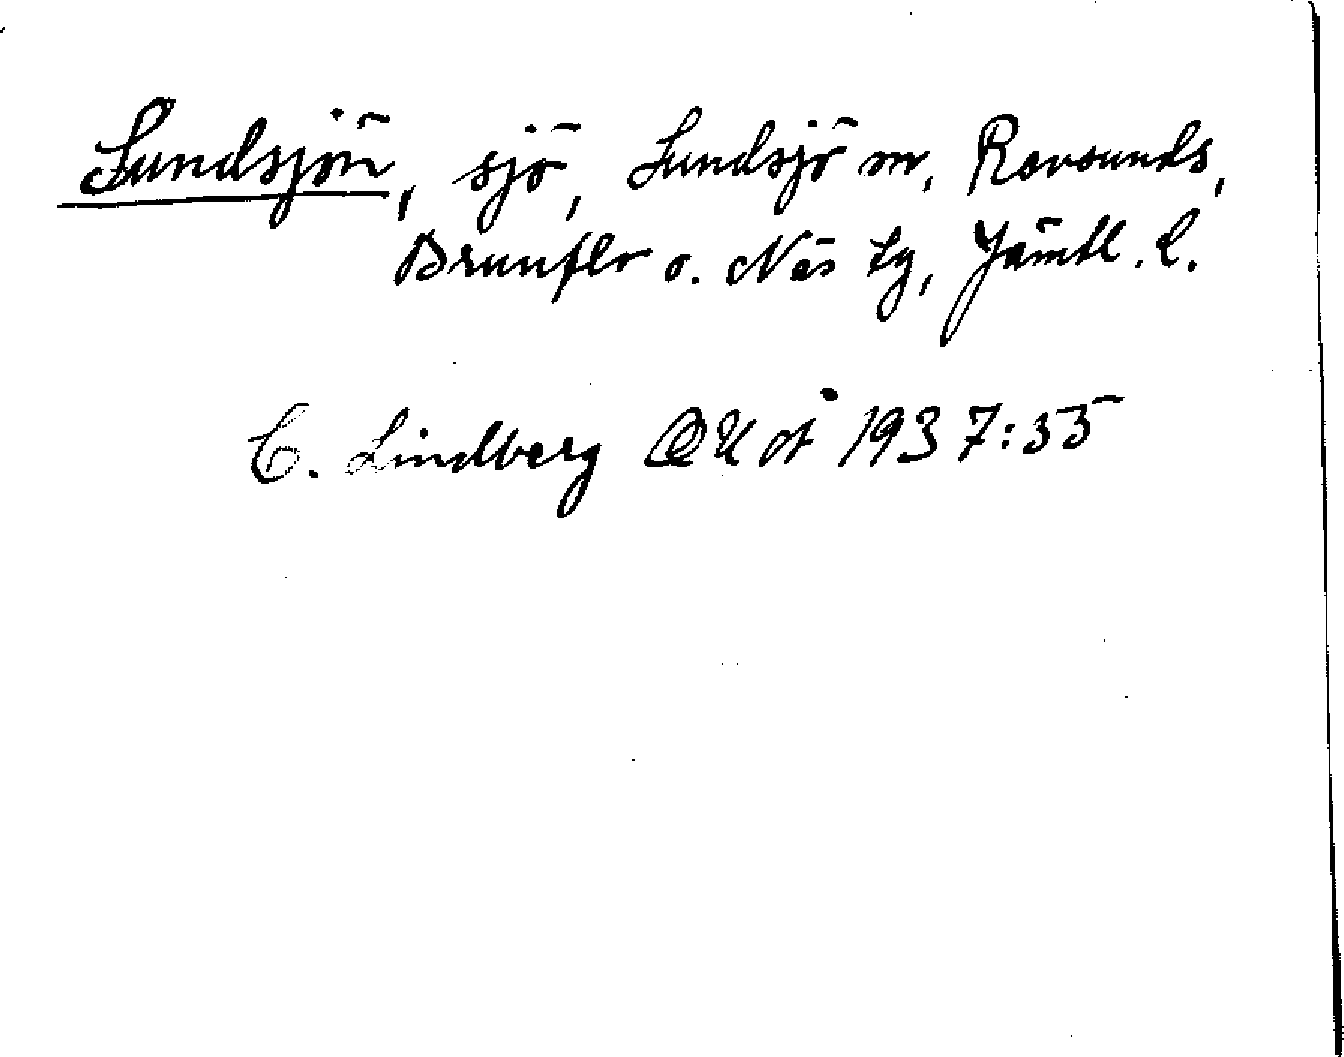 Sundsjön, sjö, Sundsjö sn, Revsunds,
Brunflo o. Näs tg, Jämtl. l.
C. Lindberg 1937:35